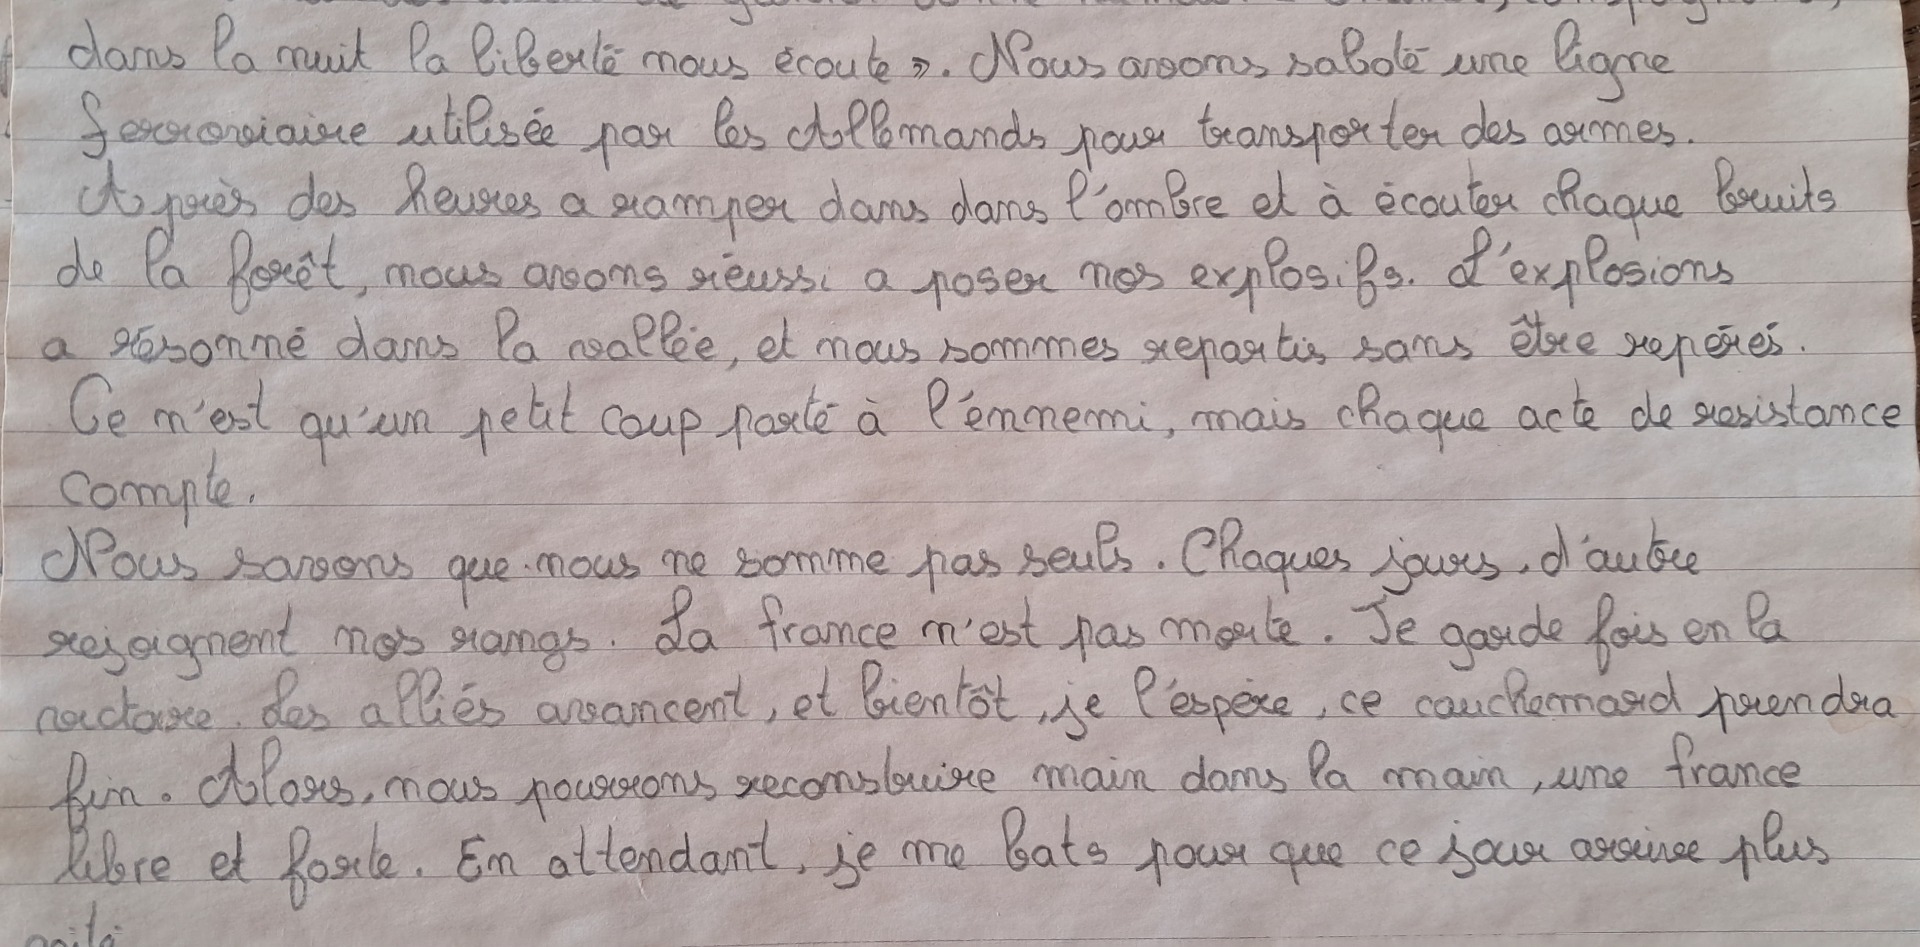 dans la nuit la liberté nous écoute ». Nous avons saboté une ligne
ferroviaire utilisée par les Allemands pour transporter des armes.
Après des heures a ramper dans dans l'ombre et à écouter chaque bruits
de la forêt, nous avons réussi a poser nos explosifs. L'explosions
a résonné dans la vallée, et nous sommes repartis sans être repérés.
Ce n'est qu'un petit coup porté à l'ennemi, mais chaque acte de resistance
compte.
Nous savons que nous ne somme pas seuls. Chaques jours, d'autre
rejoignent nos rangs. La france n'est pas morte. Je garde fois en la
victoire. Les alliés avancent, et bientôt, je l'espère, ce cauchemard prendra
fin. Alors, nous pourrons reconstruire main dans la main, une france
libre et forte. En attendant, je me bats pour que ce jour arrive plus